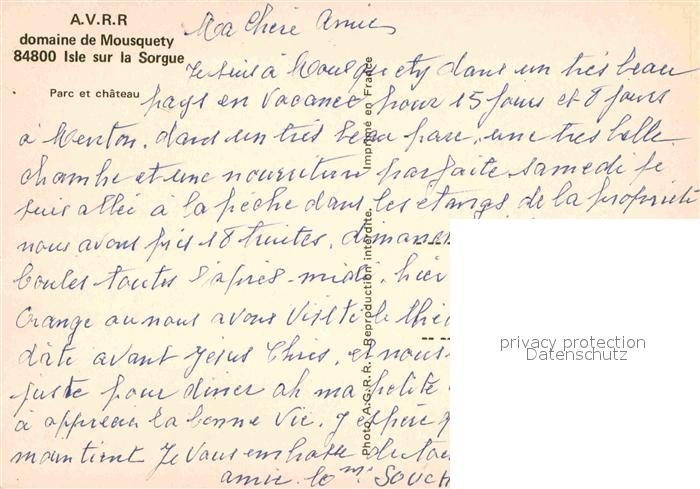 A.V.R.R
domaine de Mousquety
84800 Isle sur la Sorgue
Parc et château
Ma Chère Amie
Je suis à Mousquety dans un très beau
pays en vacance pour 15 jours et 8 jours
à Menton, dans un très beau parc, une très belle
chambre et une nourriture parfaite samedi je
suis allée à la pêche dans les étangs de la propriété
nous avons pris 18 truites, diman
boules toutes l'après-midi, hier
Orange ou nous avons visité le thé
date avant Jésus Chris, et nous
juste pour diner ah ma petite
à apprécier la bonne vie. J'espère
maintient Je vous embrasse de tou
amie. Mme SOUCH
Photo A.G.R.R. Reproduction interdite. Imprimé en France
privacy protection
Datenschutz